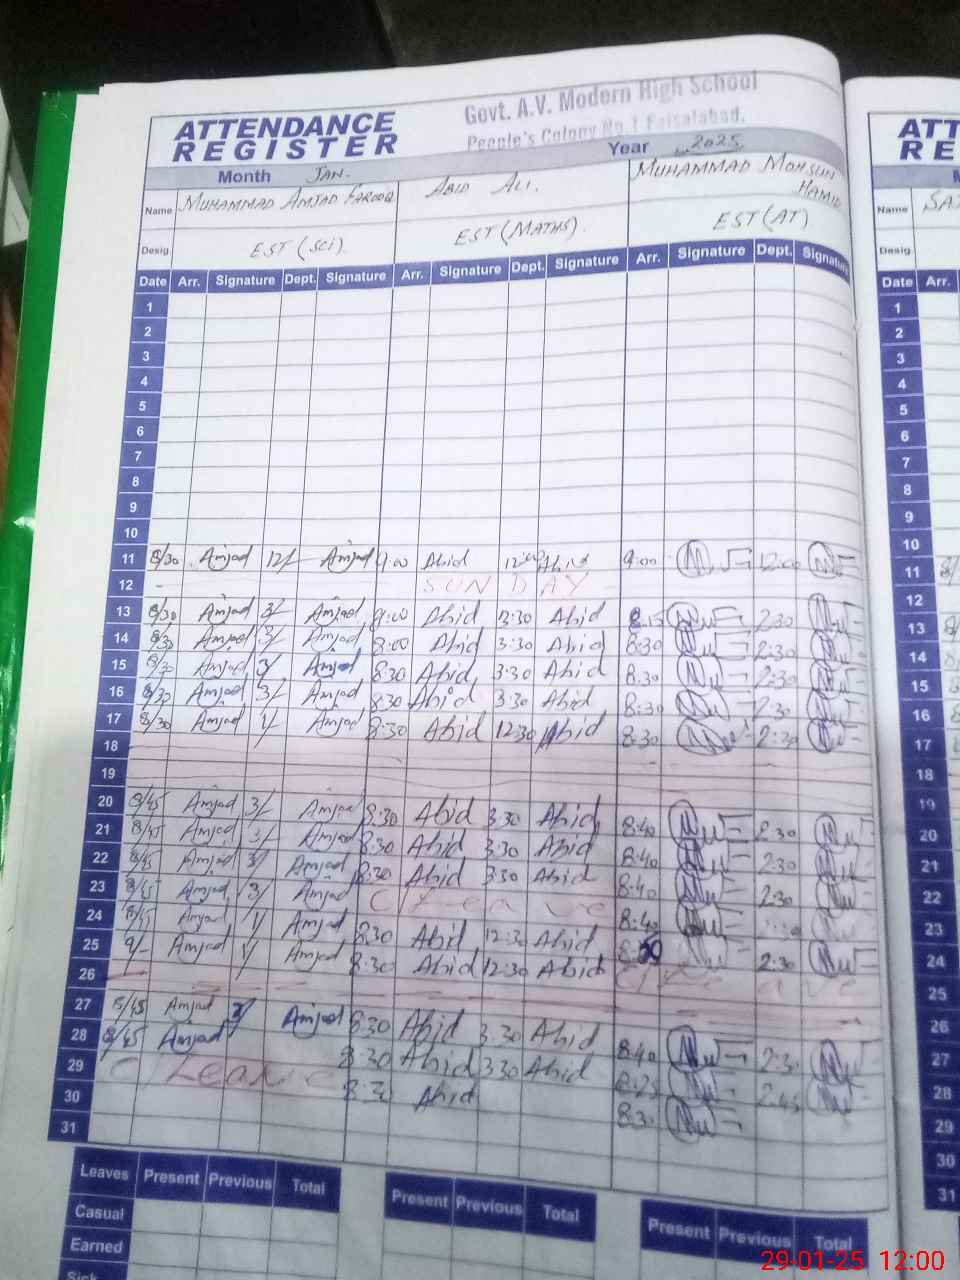 Govt. A.V. Modern High School
ATTENDANCE
REGISTER
People's Colony No.1 Faisalabad.
Year 2025
Month JAN.
Name MUHAMMAD AMJAD FAROOQ ABID ALI. MUHAMMAD MOHSUN HAMID
Desig. EST (SCI). EST (MATHS). EST (AT).
Date Arr. Signature Dept. Signature Arr. Signature Dept. Signature Arr. Signature Dept. Signature
1
2
3
4
5
6
7
8
9
10
11 8/30 Amjad 12/ Amjad 9:00 Abid 12:00 Abid 9:00 12:00
12 SUNDAY
13 8/30 Amjad 3/ Amjad 9:00 Abid 3:30 Abid 8:15 2:30
14 8/30 Amjad 3/ Amjad 8:00 Abid 3:30 Abid 8:30 2:30
15 8/30 Amjad 3/ Amjad 8:30 Abid 3:30 Abid 8:30 2:30
16 8/30 Amjad 3/ Amjad 8:30 Abid 3:30 Abid 8:30 2:30
17 8/30 Amjad 1/ Amjad 8:30 Abid 12:30 Abid 8:30 2:30
18
19
20 8/45 Amjad 3/ Amjad 8:30 Abid 3:30 Abid 8:40 2:30
21 8/45 Amjad 3/ Amjad 8:30 Abid 3:30 Abid 8:40 2:30
22 8/45 Amjad 3/ Amjad 8:30 Abid 3:30 Abid 8:40 2:30
23 8/45 Amjad 3/ Amjad C/Leave 8:40
24 8/45 Amjad 1/ Amjad 8:30 Abid 12:30 Abid 2:30
25 9/- Amjad 1/ Amjad 8:30 Abid 12:30 Abid C/Leave
26
27 8/45 Amjad 3/ Amjad 8:30 Abid 3:30 Abid 8:40 2:30
28 8/45 Amjad 8:30 Abid 3:30 Abid 8:25 2:45
29 C/Leave 8:30 Abid 8:30
30
31
Leaves Present Previous Total Present Previous Total Present Previous Total
Casual
Earned
Sick
ATT
RE
Name
Desig.
Date Arr.
1
2
3
4
5
6
7
8
9
10
11
12
13
14
15
16
17
18
19
20
21
22
23
24
25
26
27
28
29
30
31
29-01-25 12:00